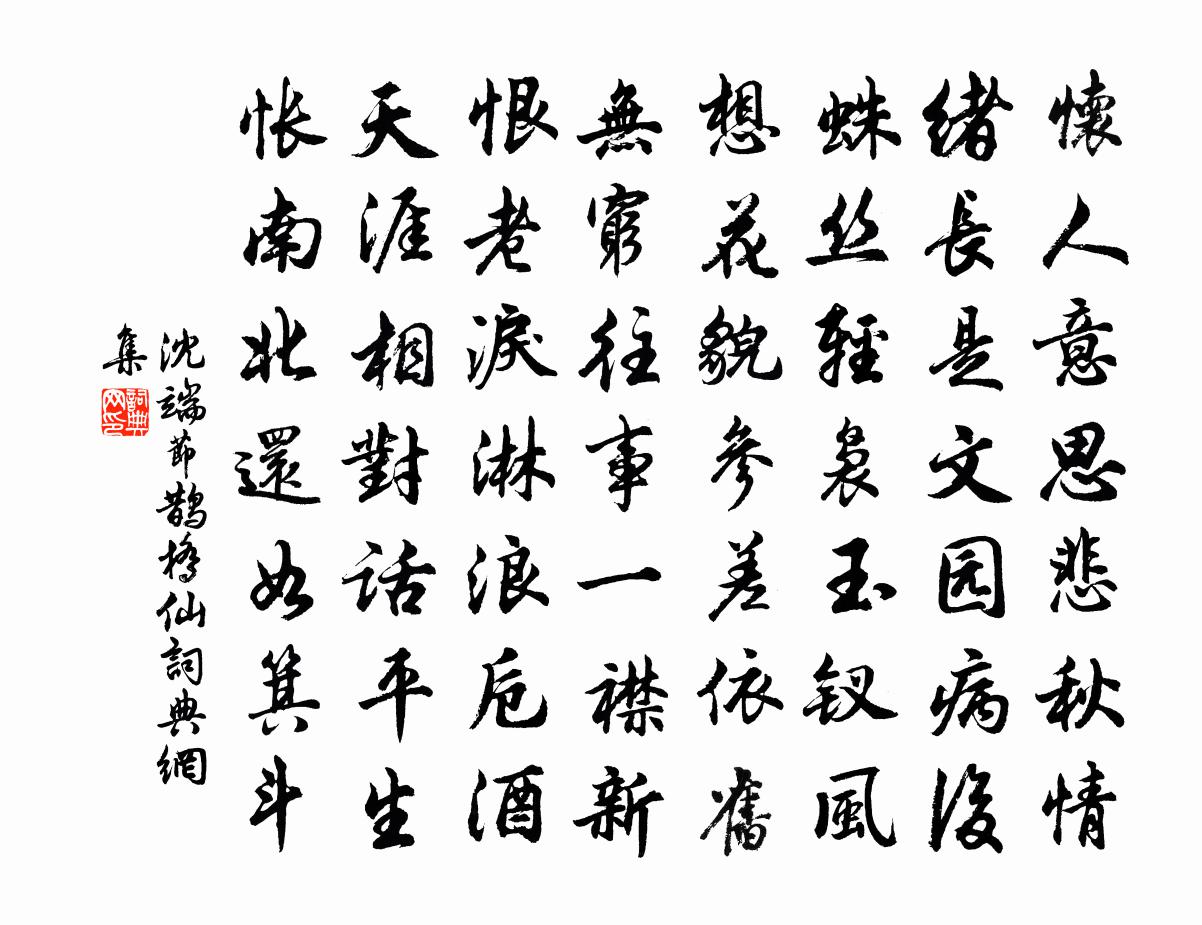 懷人意思悲秋情
緒長是文园病後
蛛丝輕裊玉钗風
想花貌參差依舊
無窮往事一襟新
恨老淚淋浪卮酒
天涯相對話平生
怅南北還如箕斗
沈端节鹊橋仙詞典網
集
詞典
网印